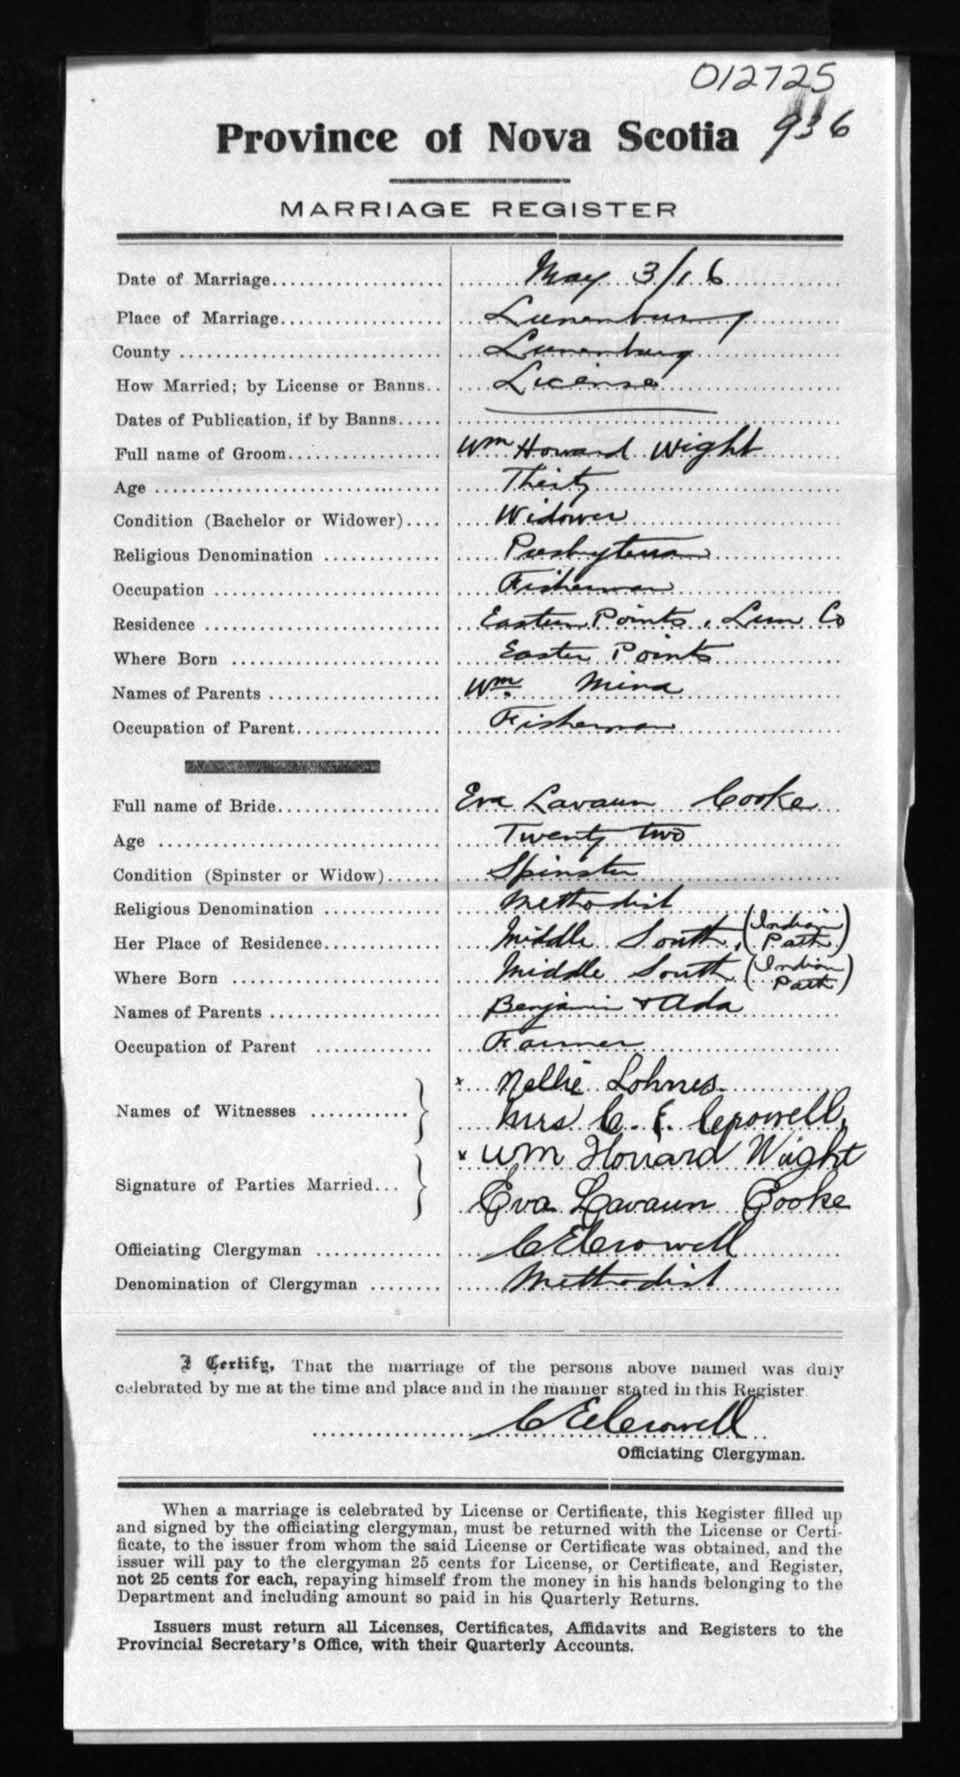 012725
936
Province of Nova Scotia
MARRIAGE REGISTER
Date of Marriage................... May 3/16
Place of Marriage.................. Lunenburg
County ........................... Lunenburg
How Married; by License or Banns.. License
Dates of Publication, if by Banns.....
Full name of Groom................. Wm Howard Wight
Age ............................... Thirty
Condition (Bachelor or Widower).... Widower
Religious Denomination ............. Presbyterian
Occupation ......................... Fisherman
Residence .......................... Eastern Points, Lun Co
Where Born ....................... Easter Points
Names of Parents ................... Wm. Mina
Occupation of Parent................ Fisherman
Full name of Bride.................. Eva Lavaun Cooke
Age ............................... Twenty two
Condition (Spinster or Widow)...... Spinster
Religious Denomination ............. Methodist
Her Place of Residence............. Middle South, (Indian Path)
Where Born ....................... Middle South (Indian Path)
Names of Parents ................... Benjamin & Ada
Occupation of Parent ............. Farmer
Names of Witnesses ........... } x Nellie Lohnes.
Mrs C. E. Crowell,
Signature of Parties Married... } x Wm Howard Wight
Eva Lavaun Cooke
Officiating Clergyman .............. C E Crowell
Denomination of Clergyman ........ Methodist
I Certify, That the marriage of the persons above named was duly
celebrated by me at the time and place and in the manner stated in this Register
C E Crowell
Officiating Clergyman.
When a marriage is celebrated by License or Certificate, this Register filled up
and signed by the officiating clergyman, must be returned with the License or Certi-
ficate, to the issuer from whom the said License or Certificate was obtained, and the
issuer will pay to the clergyman 25 cents for License, or Certificate, and Register,
not 25 cents for each, repaying himself from the money in his hands belonging to the
Department and including amount so paid in his Quarterly Returns.
Issuers must return all Licenses, Certificates, Affidavits and Registers to the
Provincial Secretary's Office, with their Quarterly Accounts.